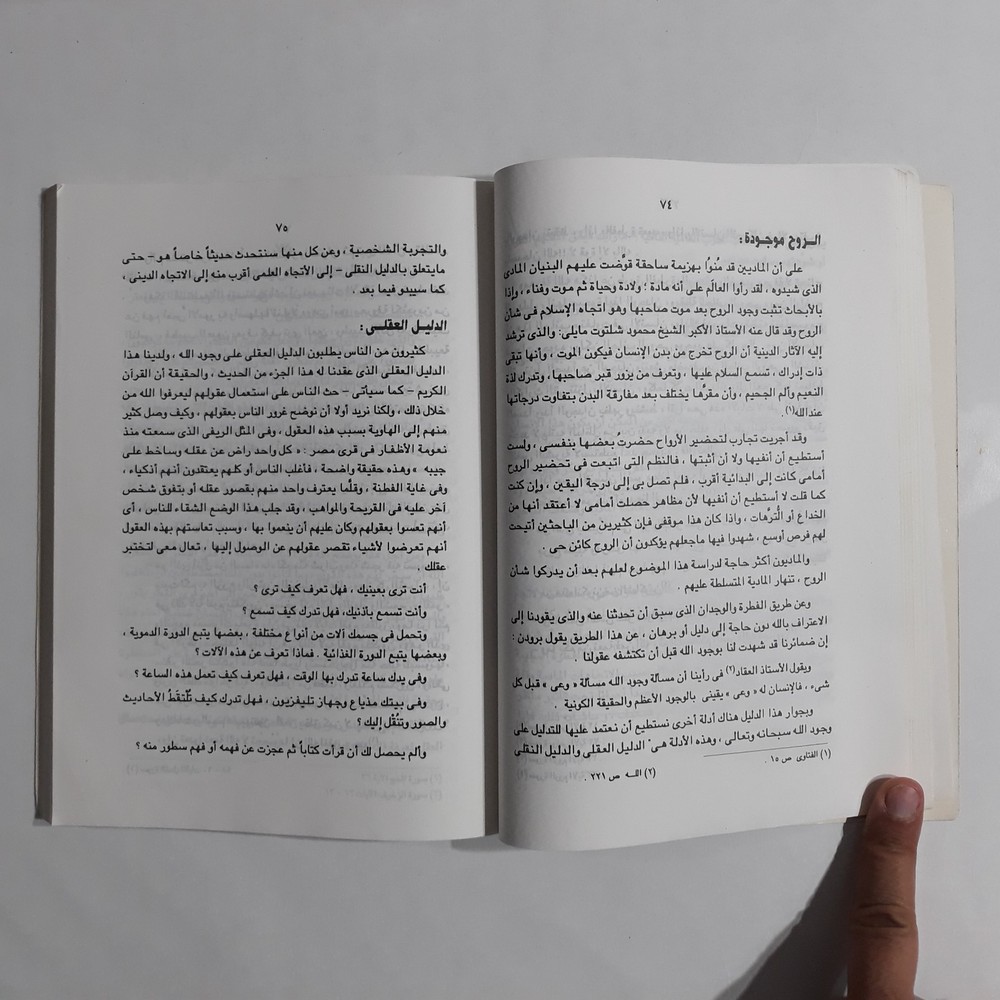 ٧٤
الـروح موجـودة :
على أن الماديين قد مُنوا بهزيمة ساحقة قوَّضت عليهم البنيان المادى
الذى شيدوه ، لقد رأوا العالَم على أنه مادة ؛ ولادة وحياة ثم موت وفناء ، وإذا
بالأبحاث تثبت وجود الروح بعد موت صاحبها وهو اتجاه الإسلام فى شأن
الروح وقد قال عنه الأستاذ الأكبر الشيخ محمود شلتوت مايلى: والذى ترشد
إليه الآثار الدينية أن الروح تخرج من بدن الإنسان فيكون الموت ، وأنها تبقى
ذات إدراك ، تسمع السلام عليها ، وتعرف من يزور قبر صاحبها ، وتدرك لذة
النعيم وألم الجحيم ، وأن مقرَّها يختلف بعد مفارقة البدن بتفاوت درجاتها
عند الله(١).
وقد أجريت تجارب لتحضير الأرواح حضرتُ بعضها بنفسى ، ولست
أستطيع أن أنفيها ولا أن أثبتها ، فالنظم التى اتبعت فى تحضير الروح
أمامى كانت إلى البدائية أقرب ، فلم تصل بى إلى درجة اليقين ، وإن كنت
كما قلت لا أستطيع أن أنفيها لأن مظاهر حصلت أمامى لا أعتقد أنها من
الخداع أو التُّرهات ، واذا كان هذا موقفى فإن كثيرين من الباحثين أتيحت
لهم فرص أوسع ، شهدوا فيها ماجعلهم يؤكدون أن الروح كائن حى .
والماديون أكثر حاجة لدراسة هذا الموضوع لعلهم بعد أن يدركوا شأن
الروح ، تنهار المادية المتسلطة عليهم .
وعن طريق الفطرة والوجدان الذى سبق أن تحدثنا عنه والذى يقودنا إلى
الاعتراف بالله دون حاجة إلى دليل أو برهان ، عن هذا الطريق يقول برودن :
إن ضمائرنا قد شهدت لنا بوجود الله قبل أن تكتشفه عقولنا .
ويقول الأستاذ العقاد(٢) فى رأينا أن مسألة وجود الله مسألة « وعى » قبل كل
شىء ، فالإنسان له « وعى » يقينى بالوجود الأعظم والحقيقة الكونية .
وبجوار هذا الدليل هناك أدلة أخرى نستطيع أن نعتمد عليها للتدليل على
وجود الله سبحانه وتعالى ، وهذه الأدلة هى: الدليل العقلى والدليل النقلى
(١) الفتاوى ص ١٥ .
(٢) اللـه ص ٢٢١ .
٧٥
والتجربة الشخصية ، وعن كل منها سنتحدث حديثاً خاصاً هـو - حتى
مايتعلق بالدليل النقلى - إلى الأتجاه العلمى أقرب منه إلى الاتجاه الدينى ،
كما سيبدو فيما بعد .
الدليـل العقلـى :
كثيرون من الناس يطلبون الدليل العقلى على وجود الله ، ولدينا هذا
الدليل العقلى الذى عقدنا له هذا الجزء من الحديث ، والحقيقة أن القرآن
الكريم - كما سيأتى - حث الناس على استعمال عقولهم ليعرفوا الله من
خلال ذلك ، ولكنا نريد أولا أن نوضح غرور الناس بعقولهم ، وكيف وصل كثير
منهم إلى الهاوية بسبب هذه العقول ، وفى المثل الريفى الذى سمعته منذ
نعومة الأظفار فى قرى مصر : « كل واحد راض عن عقله وساخط على
جيبه » وهذه حقيقة واضحة ، فأغلب الناس أو كلهم يعتقدون أنهم أذكياء ،
وفى غاية الفطنة ، وقلَّما يعترف واحد منهم بقصور عقله أو بتفوق شخص
آخر عليه فى القريحة والمواهب ، وقد جلب هذا الوضع الشقاء للناس ، أى
أنهم تعسوا بعقولهم وكان عليهم أن ينعموا بها ، وسبب تعاستهم بهذه العقول
أنهم تعرضوا لأشياء تقصر عقولهم عن الوصول إليها ، تعال معى لتختبر
عقلك .
أنت ترى بعينيك ، فهل تعرف كيف ترى ؟
وأنت تسمع بأذنيك، فهل تدرك كيف تسمع ؟
وتحمل فى جسمك آلات من أنواع مختلفة ، بعضها يتبع الدورة الدموية ،
وبعضها يتبع الدورة الغذائية . فماذا تعرف عن هذه الآلات ؟
وفى يدك ساعة تدرك بها الوقت ، فهل تعرف كيف تعمل هذه الساعة ؟
وفى بيتك مذياع وجهاز تليفزيون ، فهل تدرك كيف تُلْتقَطُ الأحاديث
والصور وتنُقْل إليك ؟
وألم يحصل لك أن قرأت كتاباً ثم عجزت عن فهمه أو فهم سطور منه ؟